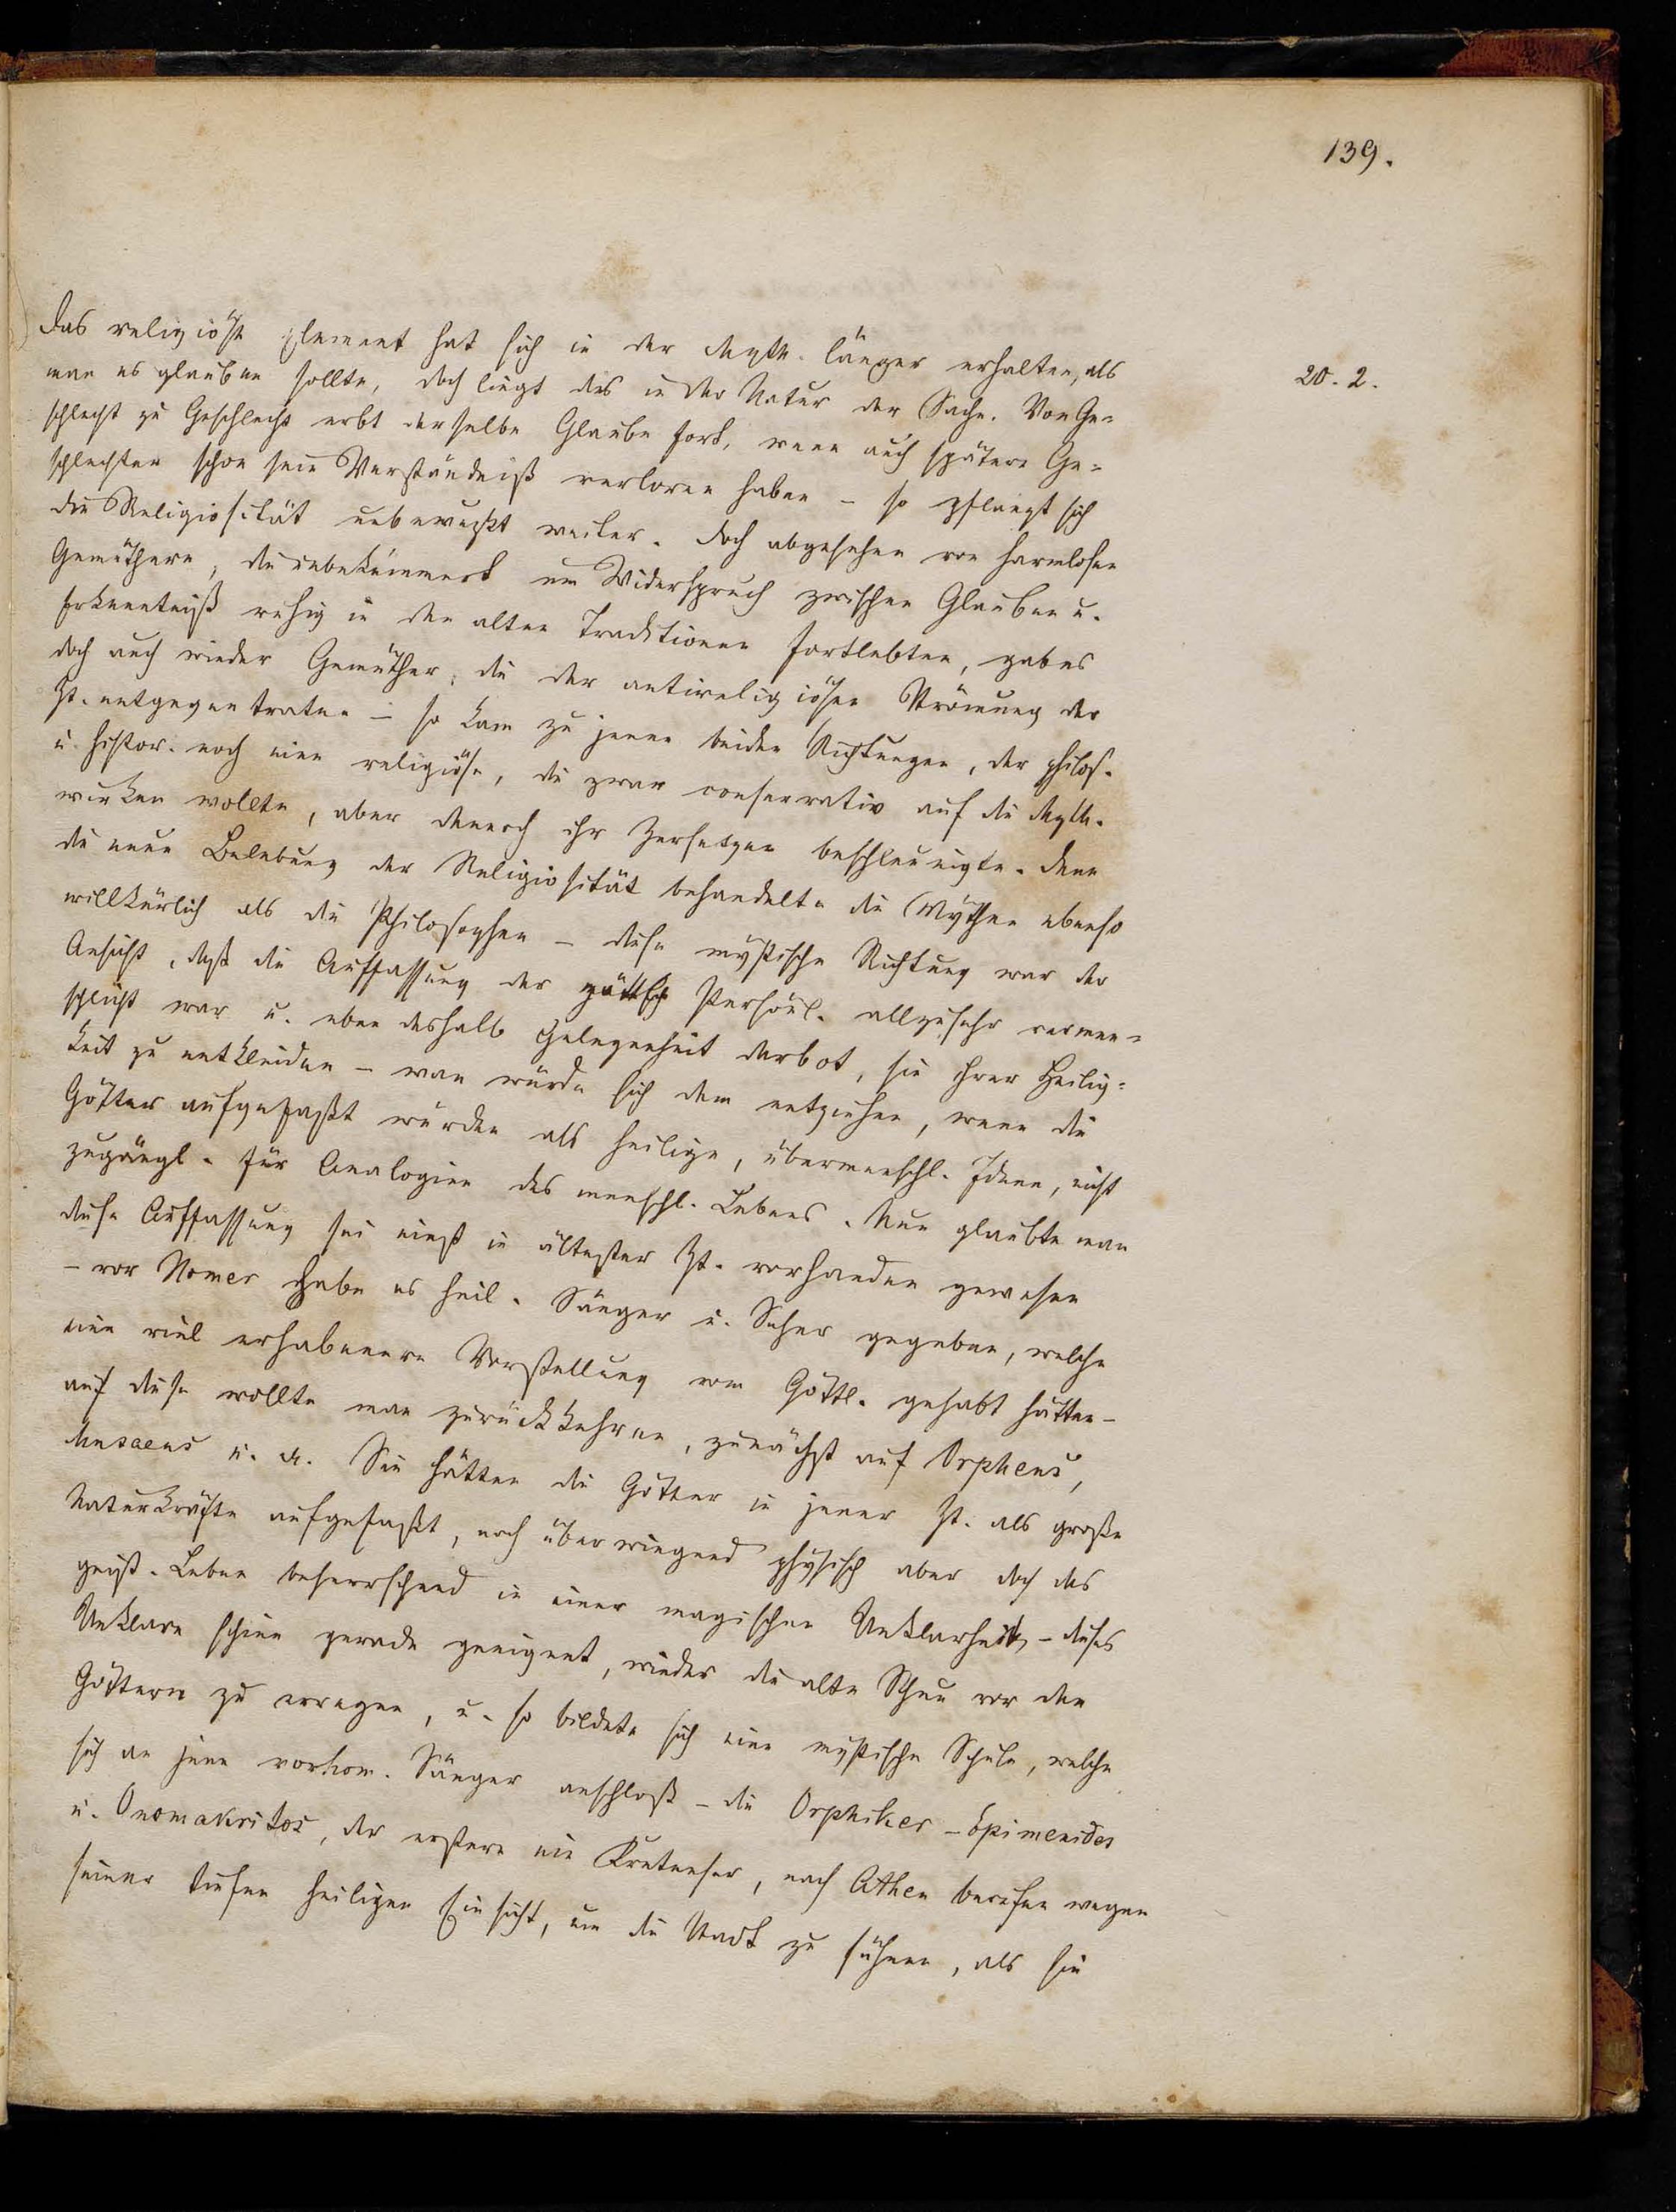 139.
Das religiöse Element hat sich in der Myth. länger erhalten, als
20. 2.
man es glauben sollte, doch liegt dies in der Natur der Sache. Von Ge-
schlecht zu Geschlecht erbt derselbe Glaube fort, wenn auch spätere Ge-
schlechter schon sein Verständniß verloren haben – so pflanzt sich
die Religiosität unbewußt weiter. Doch abgesehen von harmlosen
Gemüthern, die unbekümmert um Widerspruch zwischen Glauben u.
Erkenntniß ruhig in den alten Traditionen fortlebten, gab es
doch auch wieder Gemüther, die der antireligiösen Strömung der
Zt. entgegentraten – so kam zu jenen beiden Richtungen, der philos.
u. histor. noch eine religiöse, die zwar conservativ auf die Myth.
wirken wollte, aber dennoch ihr Zersetzen beschleunigte. Denn
die neue Belebung der Religiosität behandelte die Mythen ebenso
willkürlich als die Philosophen – diese mystische Richtung war der
Ansicht, daß die Auffassung der göttlich Persönl. allzusehr vermen-
schlicht war u. eben deshalb Gelegenheit darbot, sie ihrer Heilig-
keit zu entkleiden – man würde sich dem entziehen, wenn die
Götter aufgefaßt würden als heilige, übermenschl. Ideen, nicht
zugängl. für Analogien des menschl. Lebens. Nun glaubte man
diese Auffassung sei einst in ältester Zt. vorhanden gewesen
– vor Homer habe es heil. Sänger u. Seher gegeben, welche
eine viel erhabenere Vorstellung vom Göttl. gehabt hätten –
auf diese wollte man zurückkehren, zunächst auf Orpheus,
Musaeus u. a. Sie hätten die Götter in jener Zt. als große
Naturkräfte aufgefaßt, noch überwiegend physisch aber doch das
geist. Leben beherrschend in einer magischen Unklarheit, – dieses
Unklare schien gerade geeignet, wieder die alte Scheu vor den
Göttern zu erregen, u. so bildete sich eine mystische Schule, welche
sich an jene vorhom. Sänger anschloß – die Orphiker – Epimenides
u. Onomakritos, der erstere ein Kretenser, nach Athen berufen wegen
seiner tiefen heiligen Einsicht, um die Stadt zu sühnen, als sie